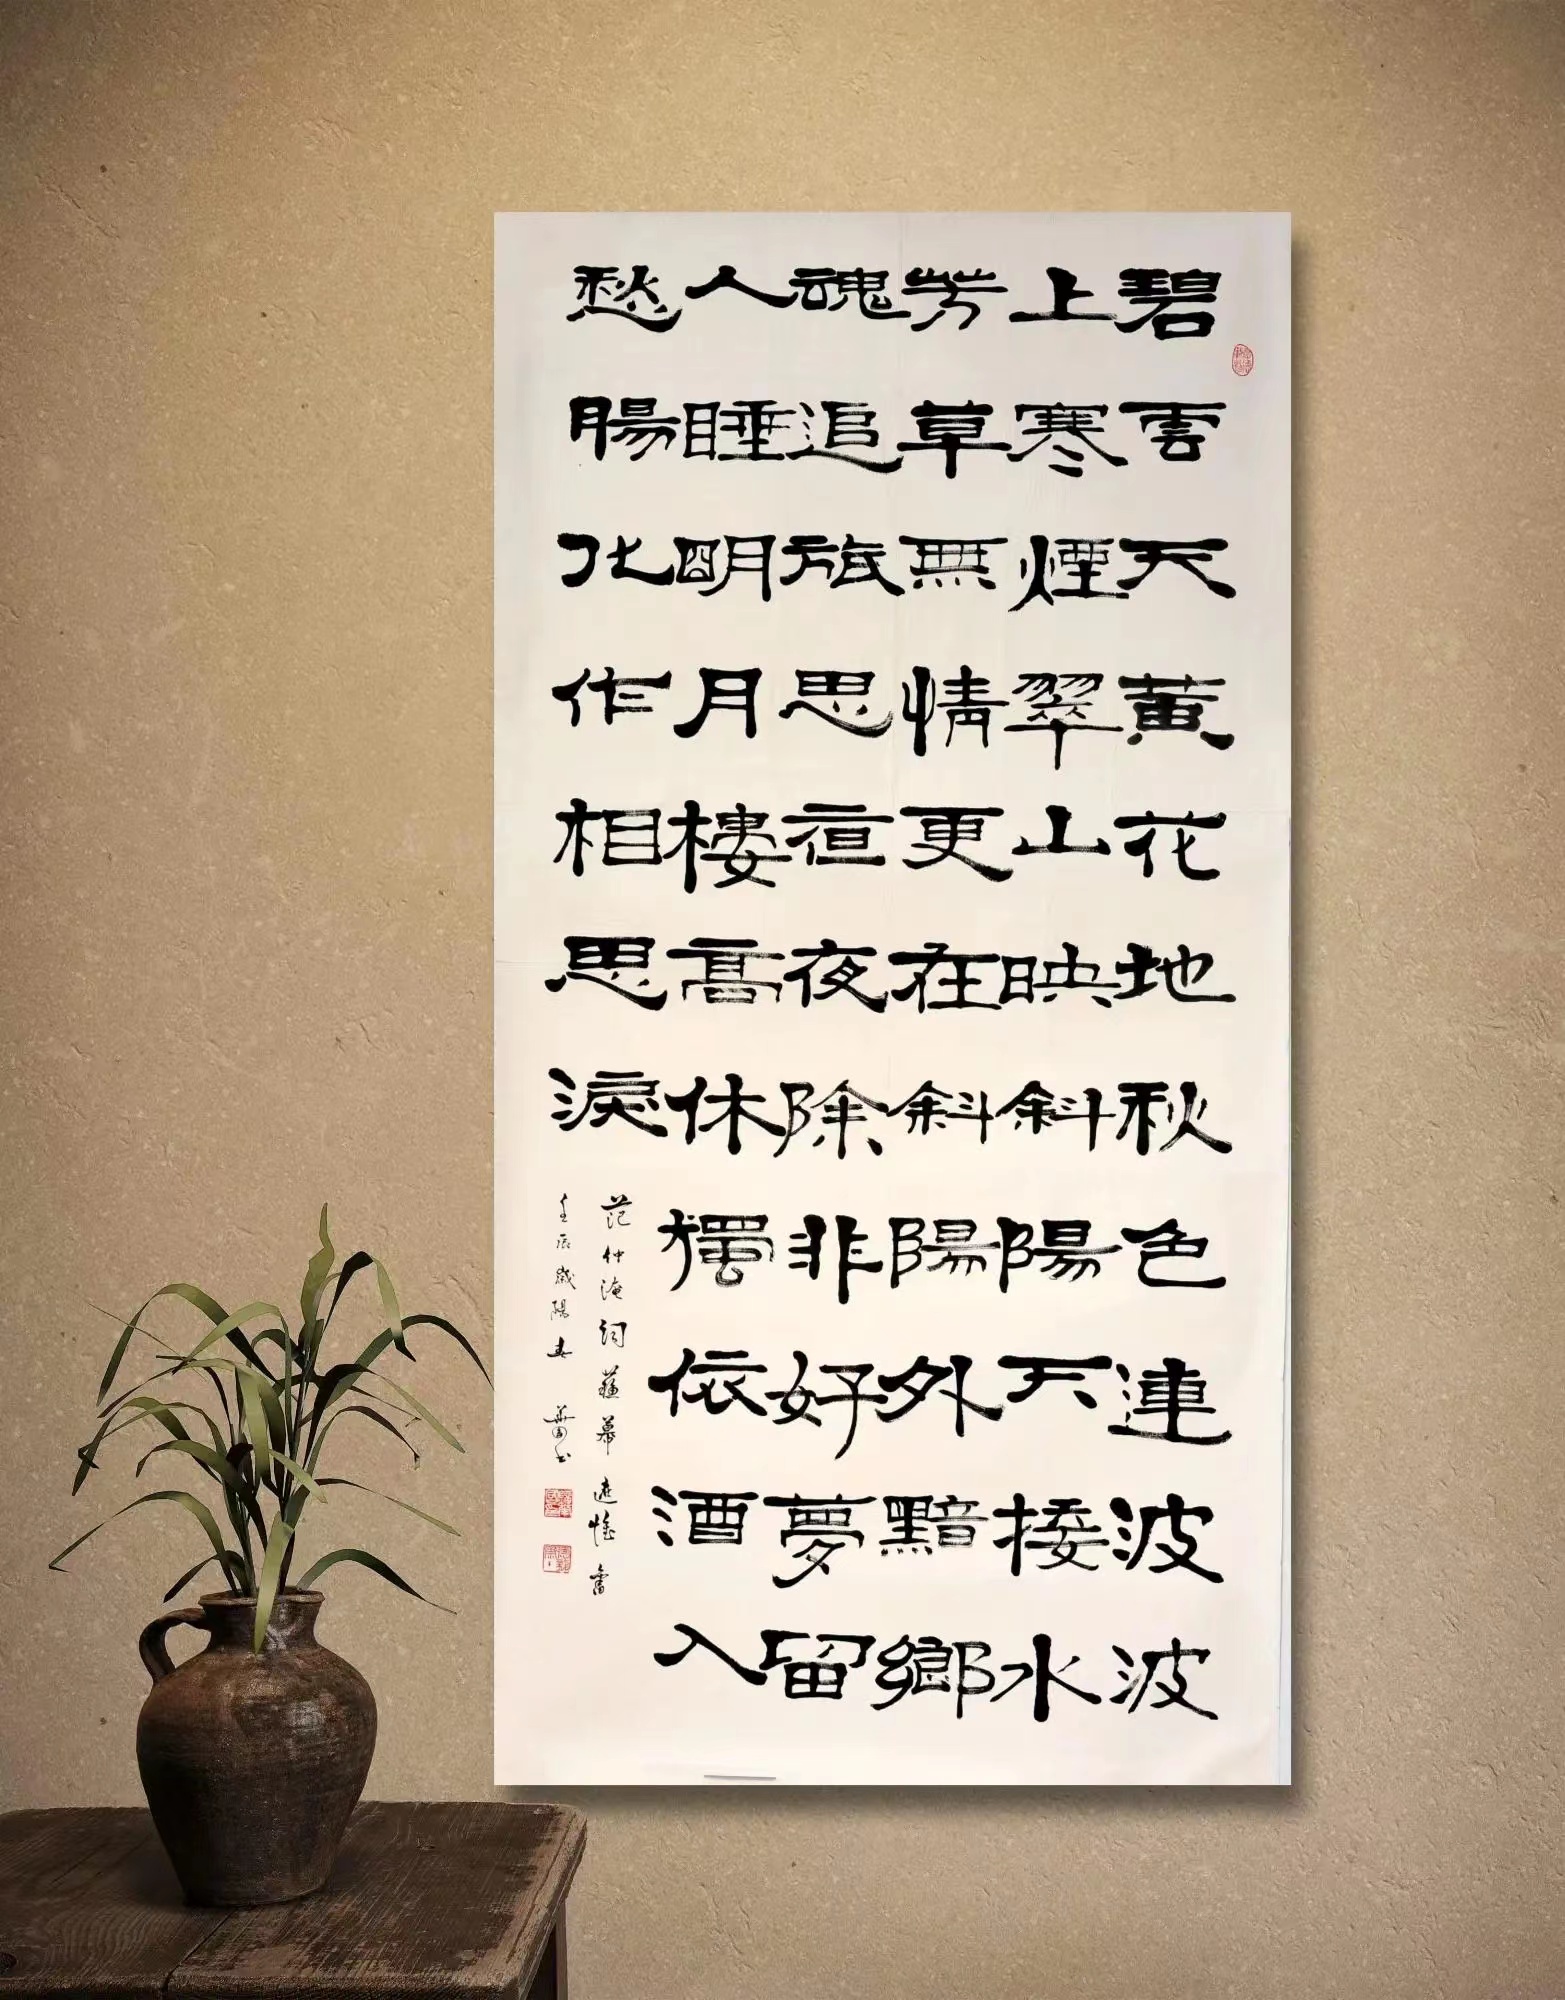 碧雲天黄花地秋色連波波
上寒煙翠山映斜陽天接水
芳草無情更在斜陽外黯鄉
魂追旅思亱夜除非好夢留
人睡明月樓高休獨依酒入
愁腸化作相思淚
范仲淹詞蘇幕遮懷舊
壬辰歲陽春